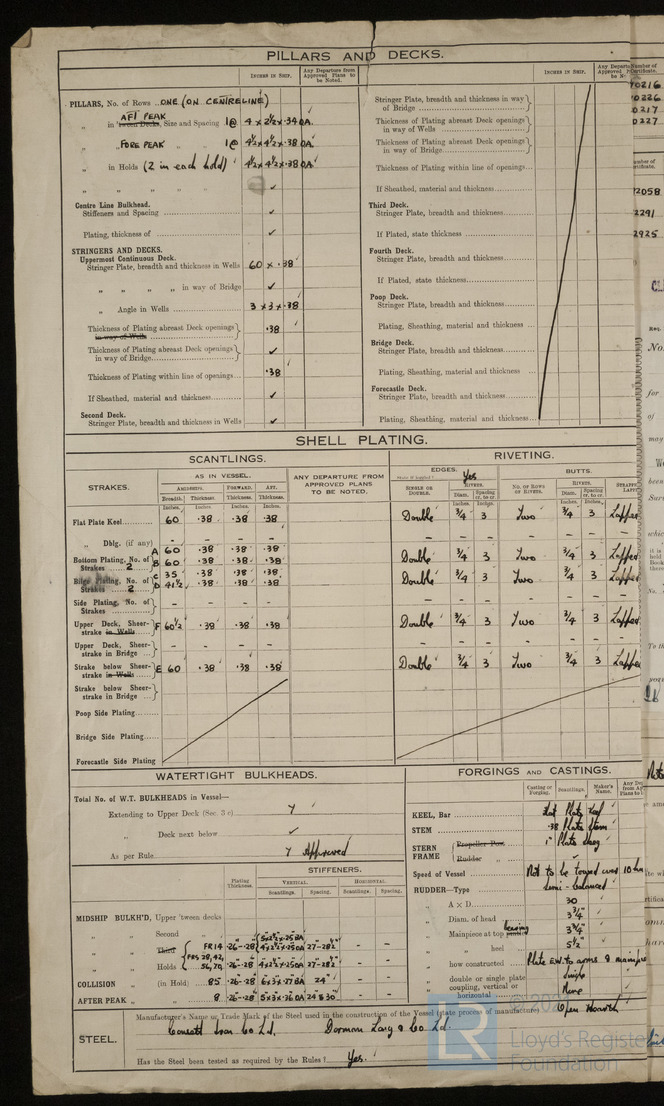 PILLARS AND DECKS.
INCHES IN SHIP.
Any Departure from Approved Plans to be Noted.
PILLARS, No. of Rows ONE (ON CENTRELINE)
AFT PEAK
„ in 'tween Decks, Size and Spacing 1@ 4 x 2½ x .34 OA.
„ FORE PEAK „ „ 1@ 4½ x 4½ x .38 OA
„ in Holds (2 in each hold) 4½ x 4½ x .38 OA
„ „ „ „ ✓
Centre Line Bulkhead.
Stiffeners and Spacing ✓
Plating, thickness of ✓
STRINGERS AND DECKS.
Uppermost Continuous Deck.
Stringer Plate, breadth and thickness in Wells 60 x .38
„ „ „ „ in way of Bridge ✓
„ Angle in Wells 3 x 3 x .38
Thickness of Plating abreast Deck openings in way of Wells .38
Thickness of Plating abreast Deck openings in way of Bridge ✓
Thickness of Plating within line of openings .38
If Sheathed, material and thickness ✓
Second Deck.
Stringer Plate, breadth and thickness in Wells ✓
INCHES IN SHIP.
Stringer Plate, breadth and thickness in way of Bridge
Thickness of Plating abreast Deck openings in way of Wells
Thickness of Plating abreast Deck openings in way of Bridge
Thickness of Plating within line of openings
If Sheathed, material and thickness
Third Deck.
Stringer Plate, breadth and thickness
If Plated, state thickness
Fourth Deck.
Stringer Plate, breadth and thickness
If Plated, state thickness
Poop Deck.
Stringer Plate, breadth and thickness
Plating, Sheathing, material and thickness
Bridge Deck.
Stringer Plate, breadth and thickness
Plating, Sheathing, material and thickness
Forecastle Deck.
Stringer Plate, breadth and thickness
Plating, Sheathing, material and thickness
SHELL PLATING.
SCANTLINGS.
RIVETING.
STRAKES.
AS IN VESSEL.
AMIDSHIPS. FORWARD. AFT.
Breadth. Thickness. Thickness. Thickness.
Inches. Inches. Inches. Inches.
ANY DEPARTURE FROM APPROVED PLANS TO BE NOTED.
EDGES. Yes
SINGLE OR DOUBLE.
RIVERS.
Diam. Spacing cr. to cr.
BUTTS.
NO. OF ROWS OF RIVETS.
RIVETS.
Diam. Spacing cr. to cr.
Flat Plate Keel 60 .38 .38 .38 Double ¾ 3 Two ¾ 3
„ Dblg. (if any) – – – – – – – – – –
Bottom Plating, No. of Strakes 2 A 60 .38 .38 .38
B 60 .38 .38 .38 Double ¾ 3 Two ¾ 3
Bilge Plating, No. of Strakes 2 C 35 .38 .38 .38
D 41½ .38 .38 .38 Double ¾ 3 Two ¾ 3
Side Plating, No. of Strakes – – – – – – – – – –
Upper Deck, Sheerstrake in Wells F 60½ .38 .38 .38 Double ¾ 3 Two ¾ 3
Upper Deck, Sheerstrake in Bridge – – – – – – – – – –
Strake below Sheerstrake in Wells E 60 .38 .38 .38 Double ¾ 3 Two ¾ 3
Strake below Sheerstrake in Bridge
Poop Side Plating
Bridge Side Plating
Forecastle Side Plating
WATERTIGHT BULKHEADS.
Total No. of W.T. BULKHEADS in Vessel—
Extending to Upper Deck (Sec. 3 c)
„ Deck next below ✓
As per Rule Approved
Plating Thickness.
STIFFENERS.
VERTICAL. HORIZONTAL.
Scantlings. Spacing. Scantlings. Spacing.
MIDSHIP BULKH'D, Upper 'tween decks
„ „ Second „
„ „ Third „ FR 14 .26-.28
FRS 28,42,
„ „ Holds 56,70 .26-.28 – –
COLLISION „ (in Hold) 85 .26-.28 24" – –
AFTER PEAK „ „ 8 .26-.28 24 & 30 – –
FORGINGS AND CASTINGS.
Casting or Forging. Scantlings. Maker's Name.
KEEL, Bar Flat Plate Keel
STEM .38 Plate Stem
STERN FRAME Propeller Post
Rudder „
Speed of Vessel Not to be towed over 10 kn
RUDDER—Type Semi-balanced
„ A x D 30
„ Diam. of head 3¾"
„ Mainpiece at top bearing 3¾"
„ „ heel 5½"
„ how constructed Plate E.W. to arms & mainpiece
„ double or single plate Single
„ coupling, vertical or horizontal None
STEEL.
Manufacturer's Name or Trade Mark of the Steel used in the construction of the Vessel (state process of manufacture) Open Hearth
Consett Iron Co Ld. Dorman Long & Co Ld.
Has the Steel been tested as required by the Rules? Yes.
LR
Lloyd's Register
Foundation